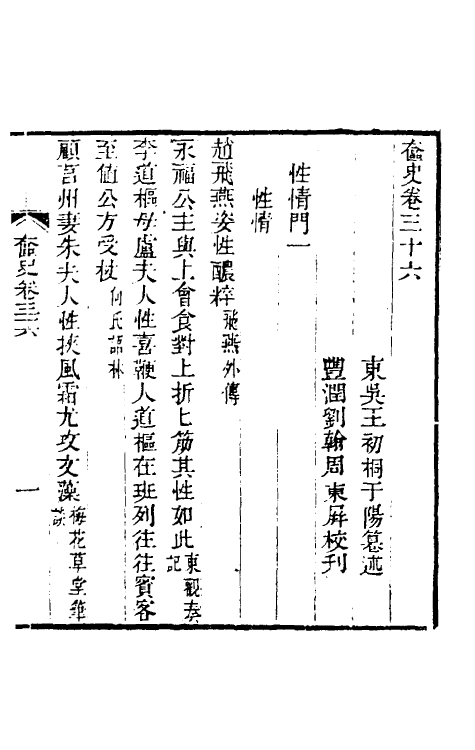 奩史卷三十六
東吳王初桐于陽纂述
豐潤劉翰周東屏校刊
性情門一
性情
趙飛燕姿性醲粹飛燕外傳
永福公主與上會食對上折匕筯其性如此東觀奏記
李道樞母盧夫人性喜鞭人道樞在班列往往賓客
至值公方受杖何氏語林
顧言州妻朱夫人性挾風霜尤攻文藻梅花草堂筆談
奩史卷三十六
一